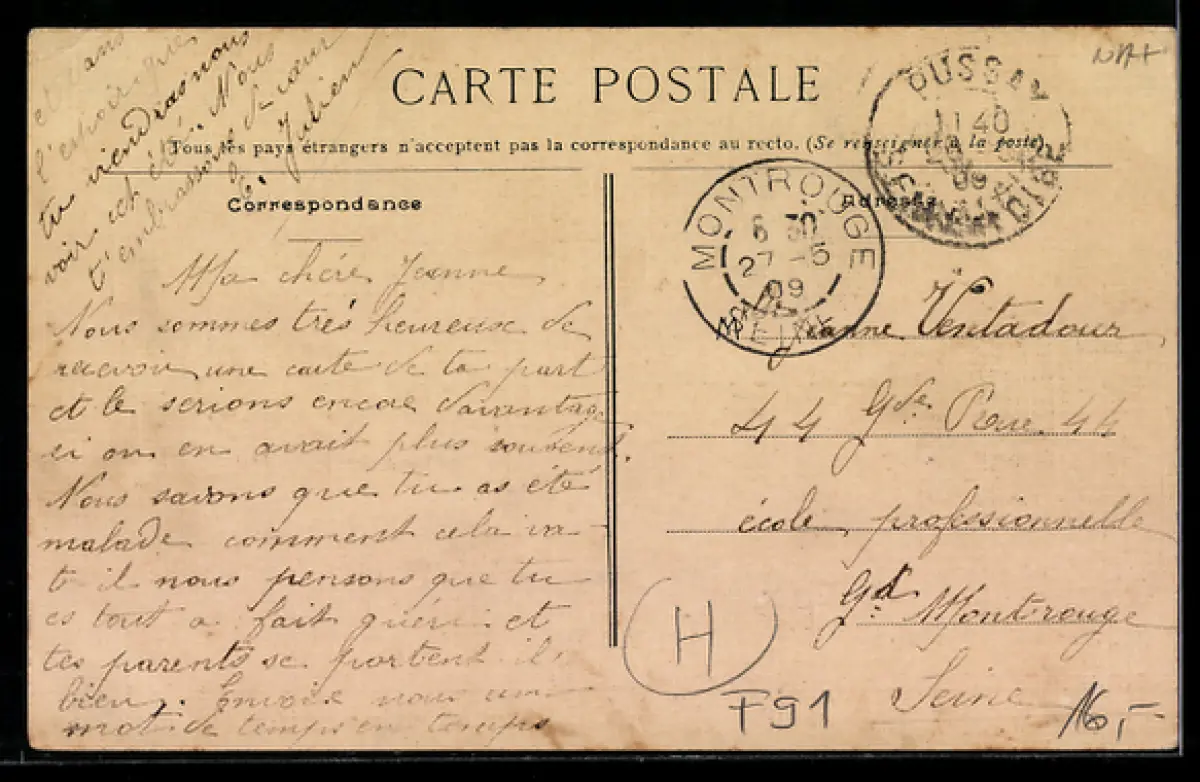 CARTE POSTALE
Tous les pays étrangers n'acceptent pas la correspondance au recto. (Se renseigner à la poste)
Correspondance
Adresse
Ma chère Jeanne
Nous sommes très heureuse de
recevoir une carte de ta part
et le serions encore davantage
si on en avait plus souvent.
Nous savons que tu as été
malade comment cela va-
t il nous pensons que tu
es tout a fait guéri et
tes parents se portent il
bien. Envoie nous un
mot de temps en temps
et dans
l'espoir que
tu viendras nous
voir cet été. Nous
t'embrassons de cœur
Julien
PUSSAY
11 40
09
SEINE-ET-OISE
MONTROUGE
6 30
27 -5
09
SEINE
Jeanne Ventadour
44 Gde Rue 44
école professionnelle
Gd Montrouge
Seine
H
F91
16,-